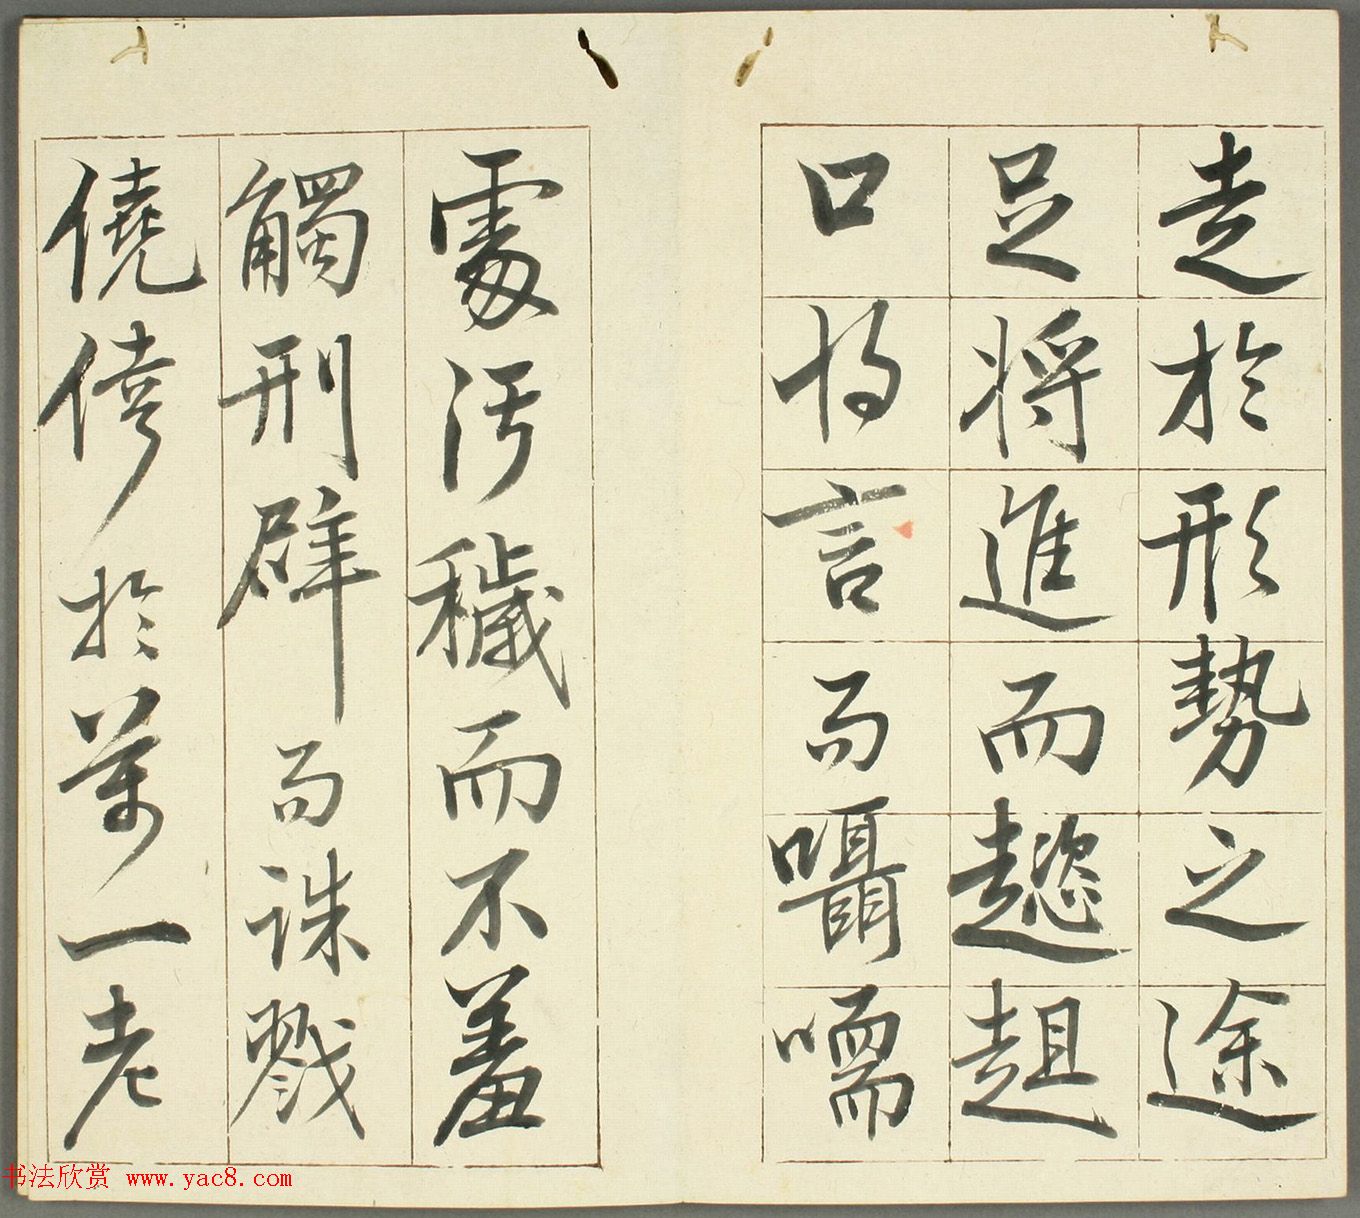 走於形勢之途
足將進而趦趄
口將言而囁嚅
處污穢而不羞
觸刑辟而誅戮
僥倖於萬一老
书法欣赏 www.yac8.com